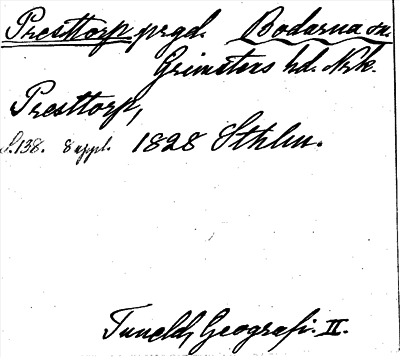 Presttorp prgd. Bodarna sn.
Grimstens hd. Nrk.
Presttorp,
S. 138. 8 uppl. 1828 Sthlm.
Tuneld, Geografi. II.